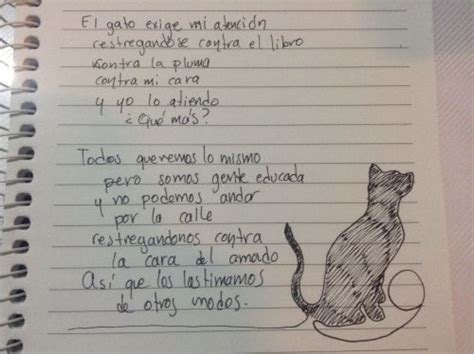 El gato exige mi atención
restregandose contra el libro
contra la pluma
contra mi cara
y yo lo atiendo
¿Qué más?
Todos queremos lo mismo
pero somos gente educada
y no podemos andar
por la calle
restregandonos contra
la cara del amado
Así que los lastimamos
de otros modos.